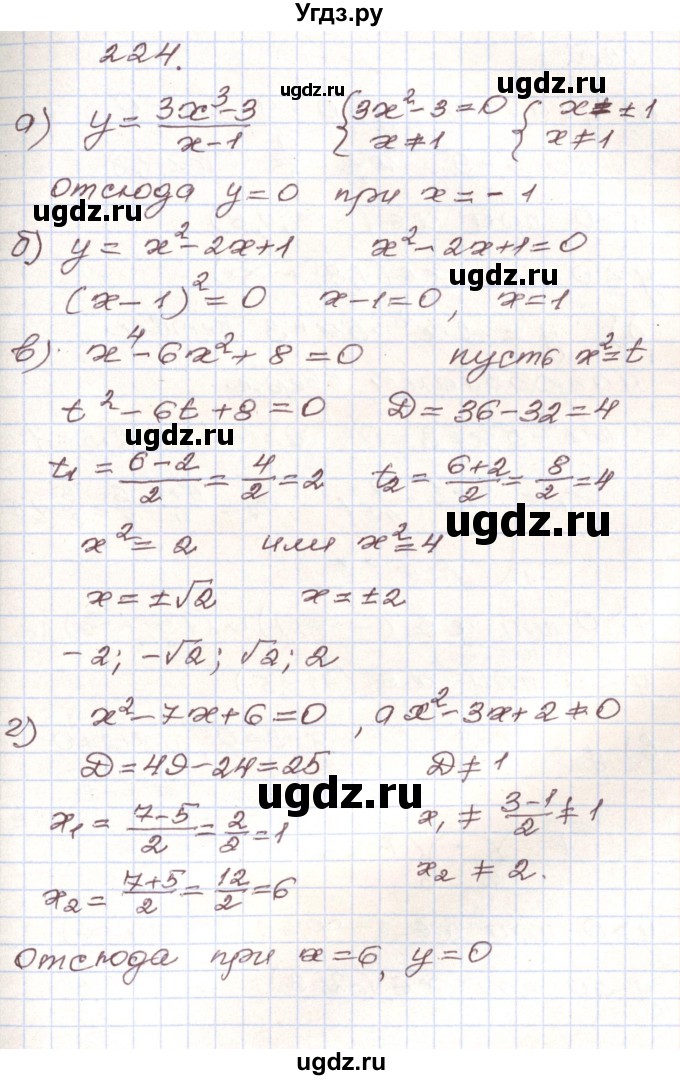 Угдз.ру
224.
а) y = (3x³-3)/(x-1) {3x²-3=0 x≠1 {x=±1 x≠1
ugdz.ru
ugdz.ru
Отсюда y=0 при x=-1
ugdz.ru
ugdz.ru
б) y= x²-2x+1 x²-2x+1=0
ugdz.ru
(x-1)²=0 x-1=0, x=1
в). x⁴-6x²+8=0 пусть x²=t
t²-6t+8=0 D=36-32=4
ugdz.ru
t₁=(6-2)/2=4/2=2 t₂=(6+2)/2=8/2=4
ugdz.ru
x²=2 или x²=4
x=±√2 x=±2
-2; -√2; √2; 2
г) x²-7x+6=0, а x²-3x+2≠0
D=49-24=25 D≠1
ugdz.ru
x₁=(7-5)/2=2/2=1 x₁≠(3-1)/2≠1
x₂=(7+5)/2=12/2=6 x₂≠2.
Отсюда при x=6, y=0
ugdz.ru